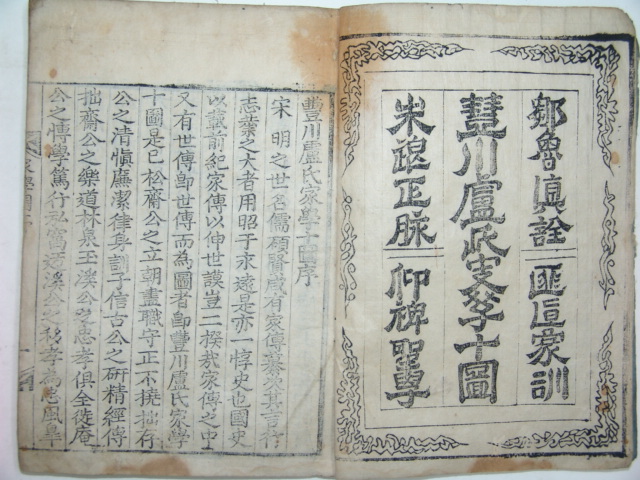 鄒魯眞詮 匪直家訓
豐川盧氏家學十圖
朱退正脉 仰裨聖學
豐川盧氏家學十圖序
宋明之世名儒碩賢咸有家傳纂次其言行
志業之大者用昭于永遠是亦一惇史也國史
以載前紀家傳以伸世謨豈二揆哉家傳之中
又有世傳卽世傳而為圖者卽豐川盧氏家學
十圖是已松齋公之立朝盡職守正不撓拙存
公之清愼廉潔律身訓子信古公之硏精經傳
拙齋公之樂道林泉玉溪公之忠孝俱全徙庵
公之惇學篤行私窩溪公之移孝為忠風皐